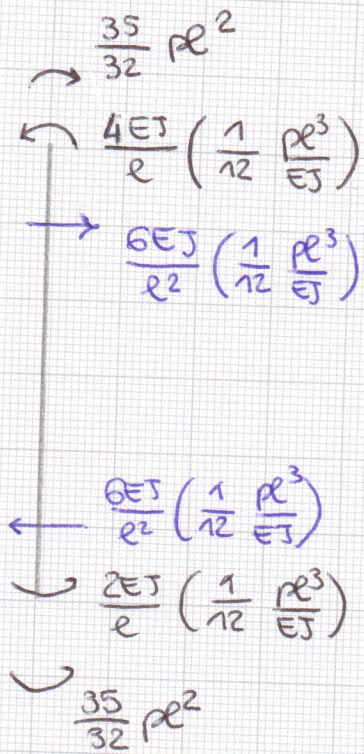 35/32 pl²
4EJ/l (1/12 pl³/EJ)
6EJ/l² (1/12 pl³/EJ)
6EJ/l² (1/12 pl³/EJ)
2EJ/l (1/12 pl³/EJ)
35/32 pl²